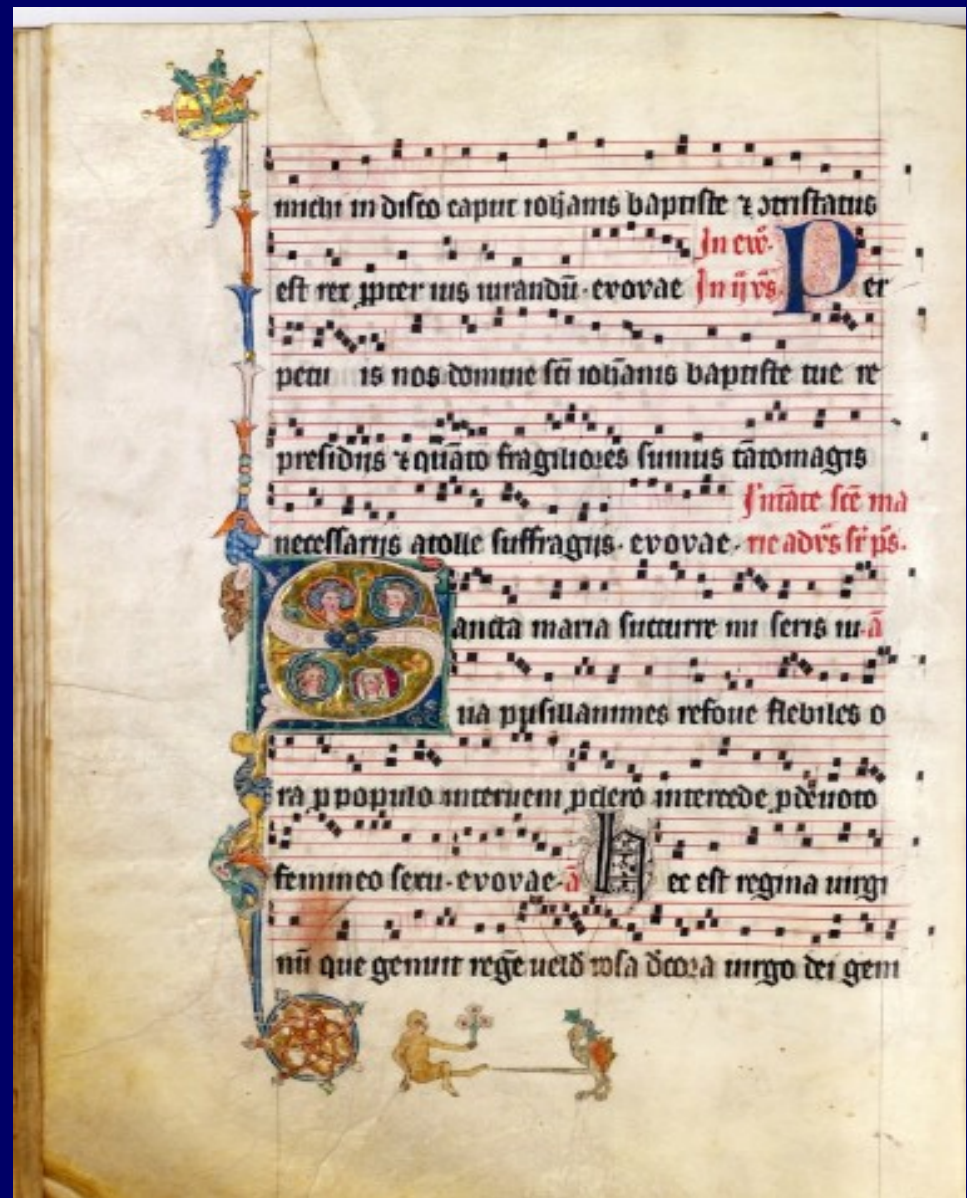 michi in disco caput ioħanis baptiste ⁊ ɔtristatus
est rex ꝓpter ius iurandū · evovae In ew̄. In ij vs̄. Per
petu is nos domine sc̄i ioħanis baptiste tue re
presidijs ⁊ quāto fragiliores sumus tātomagis
necessarijs atolle suffragijs · evovae · In nāte sc̄e ma
rie ad vs̄ sr̄ ps̄.
Sancta maria succurre mi seris iu · ā
ua pusillanimes refove flebiles o
ra ꝓ populo interueni ꝓ clero intercede ꝓ deuoto
femineo sexu · evovae · ā hec est regina uirgi
nū que genuit regē uelđ rosa đcora uirgo dei geni